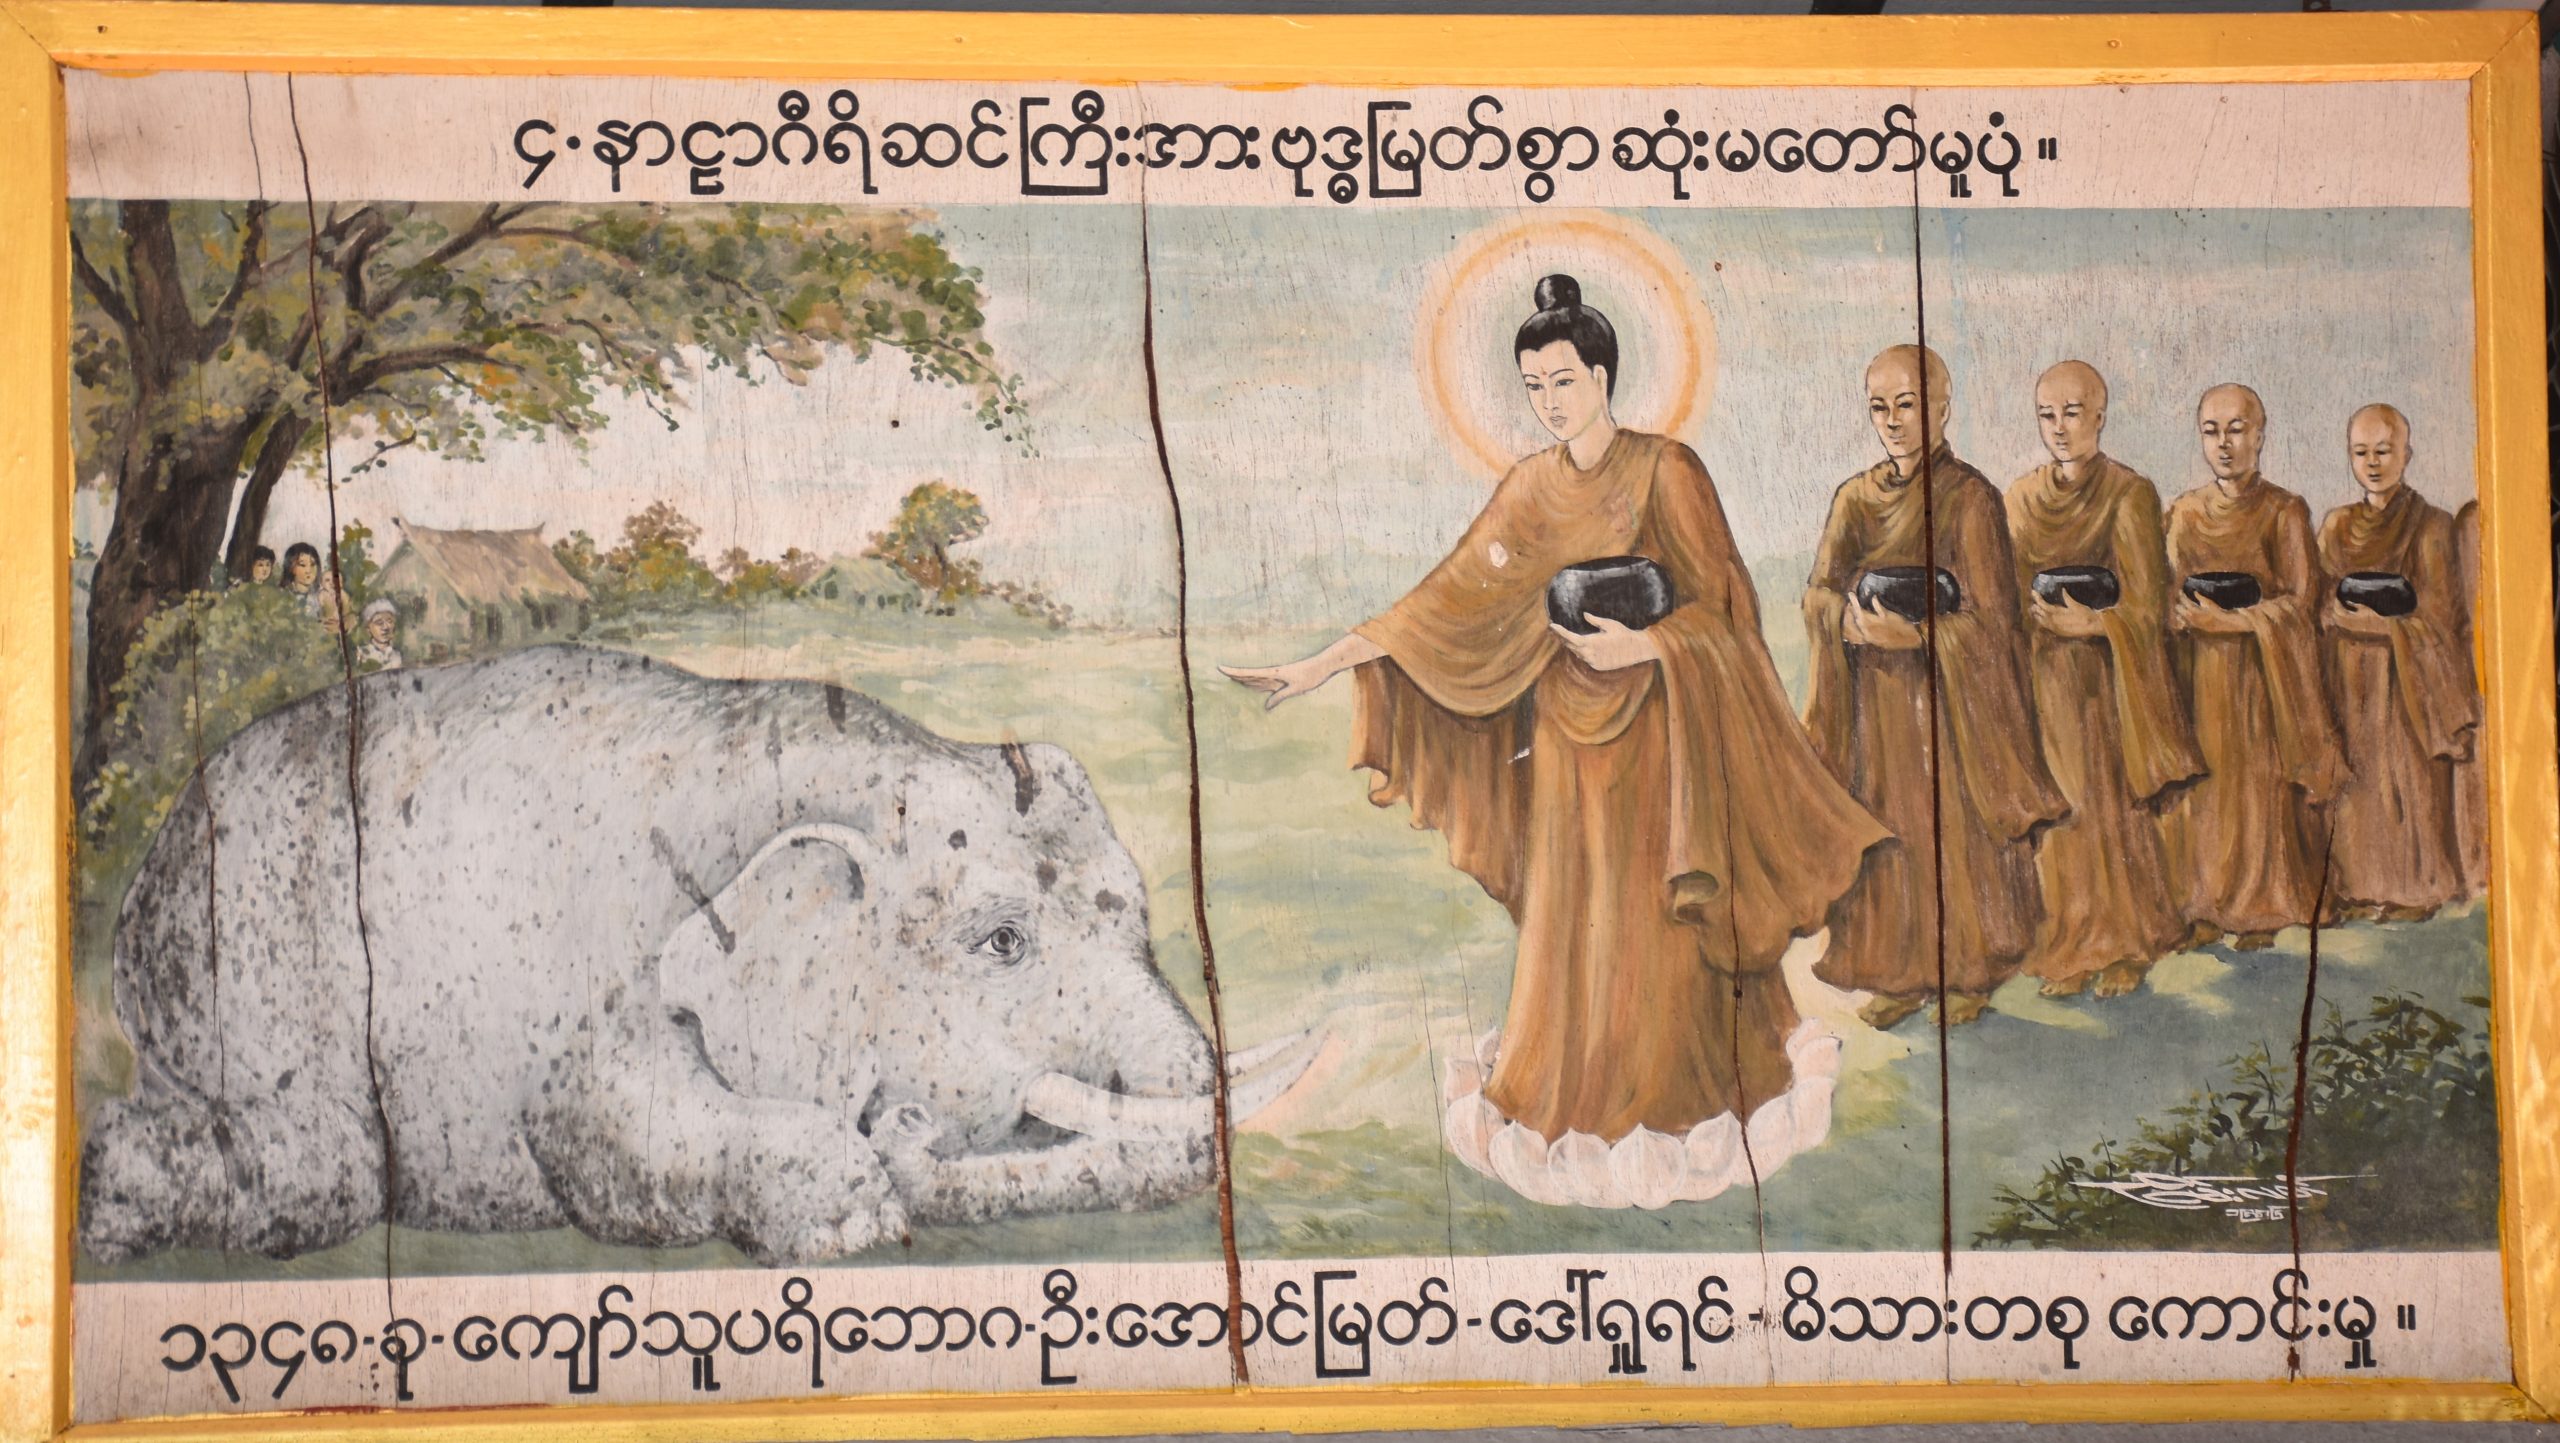 ၄.နာဠာဂီရိဆင်ကြီးအား ဗုဒ္ဓမြတ်စွာ ဆုံးမတော်မူပုံ။
၁၃၄၈-ခု-ကျော်သူပရိဘောဂ-ဦးအောင်မြတ်-ဒေါ်ရှုရင်-မိသားတစု ကောင်းမှု။